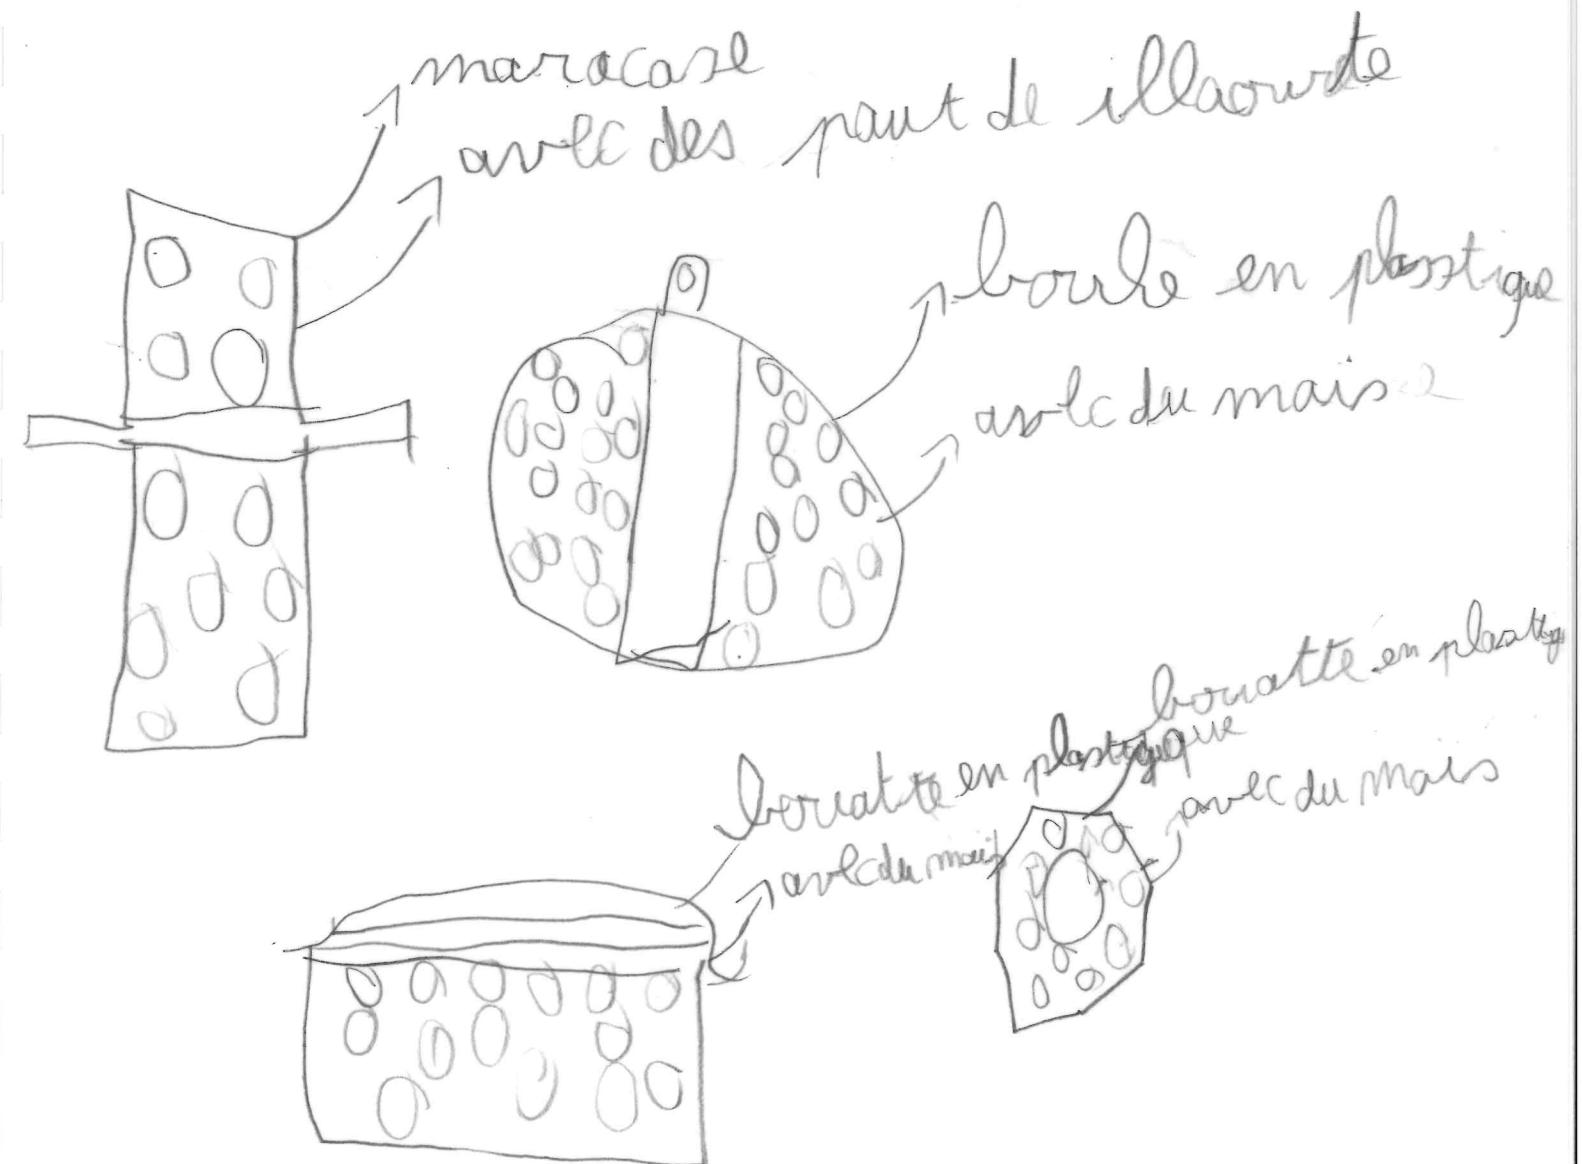 maracase
avec des paut de illaourte
boule en plasstique
avec du mais
bouatte en plastique
avec du mais
bouatte en plastique
avec du mais